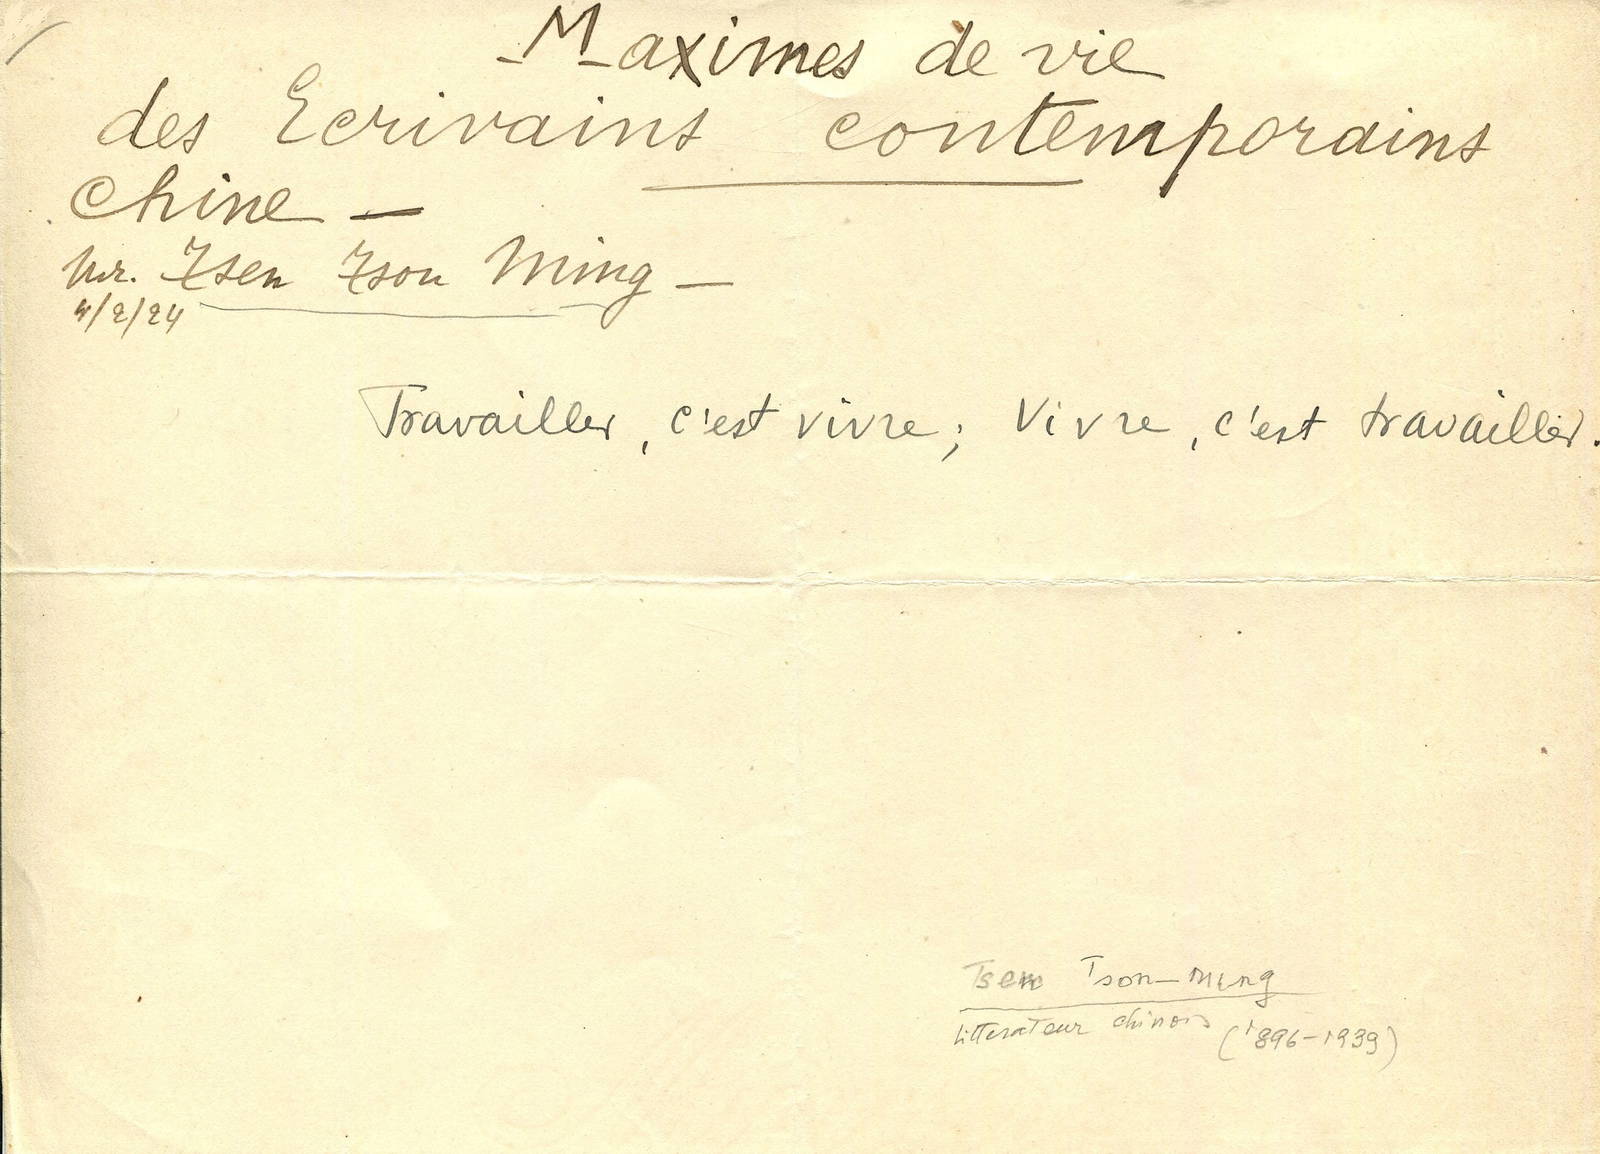 - Maximes de vie
des Ecrivains contemporains
Chine —
Mr. Tsen Tson Ming —
4/2/24
Travailler, c'est vivre; Vivre, c'est travailler.
Tsen Tson-Ming
littérateur chinois (1896-1939)